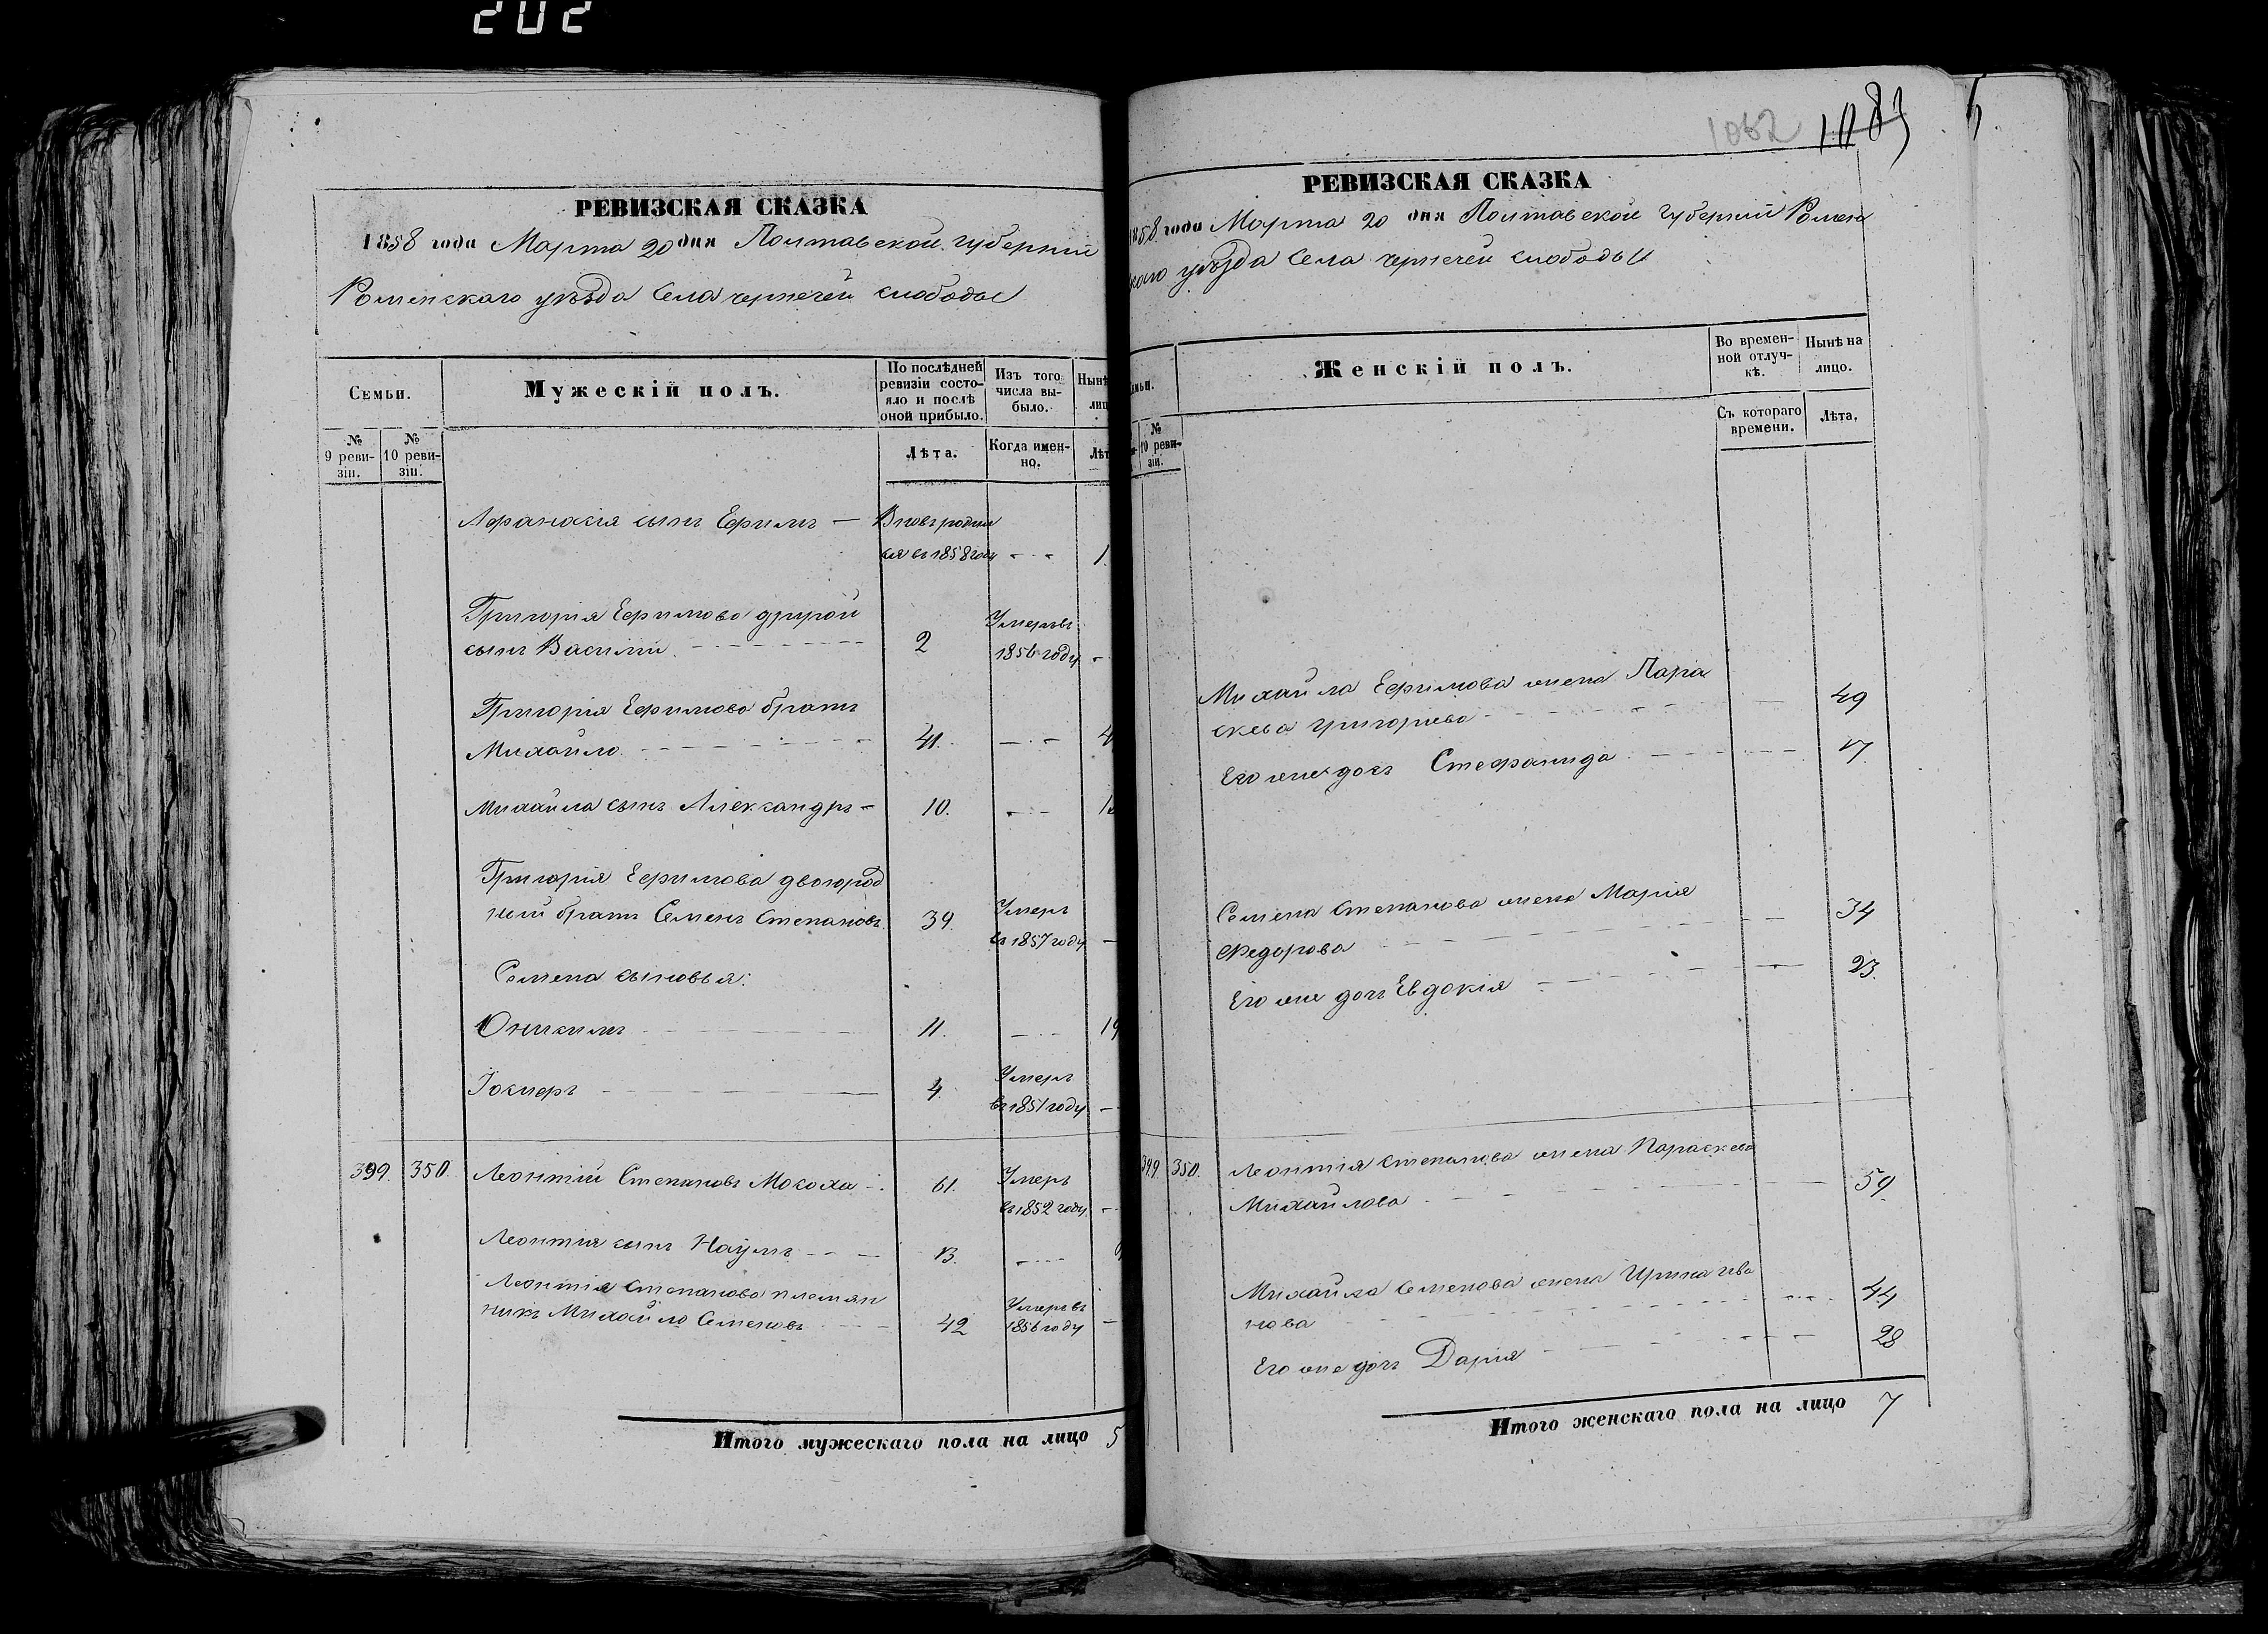 202
РЕВИЗСКАЯ СКАЗКА
1858 года Марта 20 дня Полтавской губернии
Роменского уѣзда Села чернечей слободы
Семьи.
Мужескій полъ.
По послѣдней ревизіи состояло и послѣ оной прибыло.
Изъ того числа выбыло.
Нынѣ
лиц
№ 9 ревизіи.
№ 10 ревизіи.
Лѣта.
Когда именно.
Лѣт
Афанасія сынъ Ефимъ — Вновь родил
ся въ 1858 году - - - 1.
Григорія Ефимова другой
сынъ Василій 2 Умеръ въ
1856 году -
Григорія Ефимова братъ
Михайло 41. - - - 4
Михайла сынъ Александръ - 10. - - -
Григорія Ефимова двоюрод
ный братъ Семенъ Степановъ 39. Умеръ
въ 1857 году -
Семена сыновья:
Оникимъ 11. - - - 19
4. Умеръ
въ 1851 году -
399. 350. Леонтій Степановъ Мокоха 61. Умеръ
въ 1852 году. -
Леонтія сынъ Наумъ 13. - - -
Леонтія Степанова племян
никъ Михайло Семеновъ 42 Умеръ въ
1856 году -
Итого мужескаго пола на лицо 5
1062 1083
РЕВИЗСКАЯ СКАЗКА
1858 года Марта 20 дня Полтавской губерніи Ромен
ского уѣзда Села чернечей слободы
емьи.
Женскій полъ.
Во временной отлучкѣ.
Нынѣ на лицо.
№ 10 ревизіи.
Съ котораго времени.
Лѣта.
Михайла Ефимова жена Пара
скева григорьева 49
Его же дочь Стефанида 17.
Семена Степанова жена Марія
Федорова 34
Его же дочь Евдокія 23.
399. 350. Леонтія Степанова жена Параскева
Михайлова 59.
Михайла Семенова жена Ирина ива
нова 44
Его же дочь Дарія 28
Итого женскаго пола на лицо 7